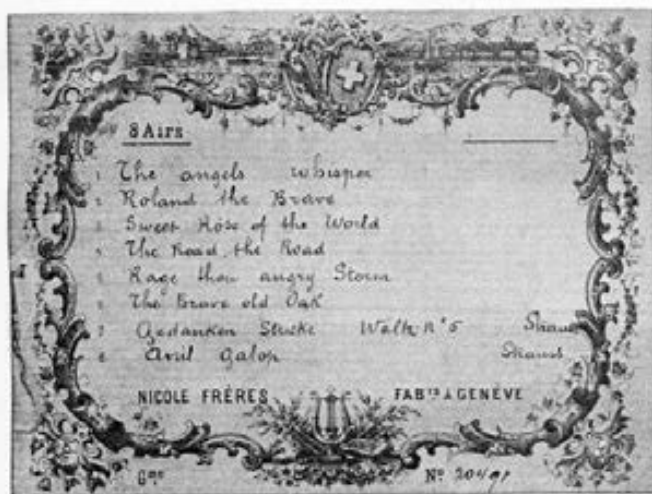 8 Airs
1 The angels whisper
2 Roland the Brave
3 Sweet Rose of the World
4 The Road, the Road
5 Rage thou angry Storm
6 The Brave old Oak
7 Gedanken Stricke Walk Nº 5 Strauss
8 Avril Galop Strauss
NICOLE FRÈRES FABTS À GENÈVE
Gme Nº